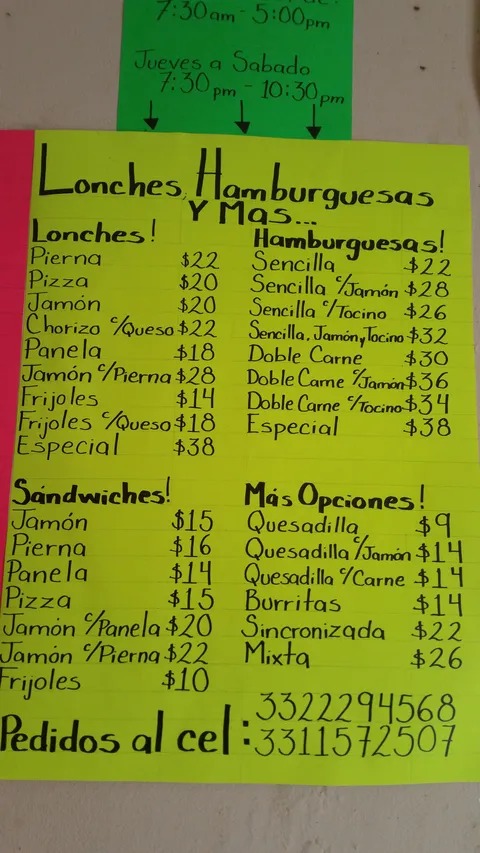 7:30am - 5:00pm
Jueves a Sabado
7:30pm - 10:30pm
Lonches, Hamburguesas
Y Mas...
Lonches!
Pierna $22
Pizza $20
Jamón $20
Chorizo c/Queso $22
Panela $18
Jamón c/Pierna $28
Frijoles $14
Frijoles c/Queso $18
Especial $38
Hamburguesas!
Sencilla $22
Sencilla c/Jamón $28
Sencilla c/Tocino $26
Sencilla, Jamón y Tocino $32
Doble Carne $30
Doble Carne c/Jamón $36
Doble Carne c/Tocino $34
Especial $38
Sándwiches!
Jamón $15
Pierna $16
Panela $14
Pizza $15
Jamón c/Panela $20
Jamón c/Pierna $22
Frijoles $10
Más Opciones!
Quesadilla $9
Quesadilla c/Jamón $14
Quesadilla c/Carne $14
Burritas $14
Sincronizada $22
Mixta $26
Pedidos al cel:
3322294568
3311572507